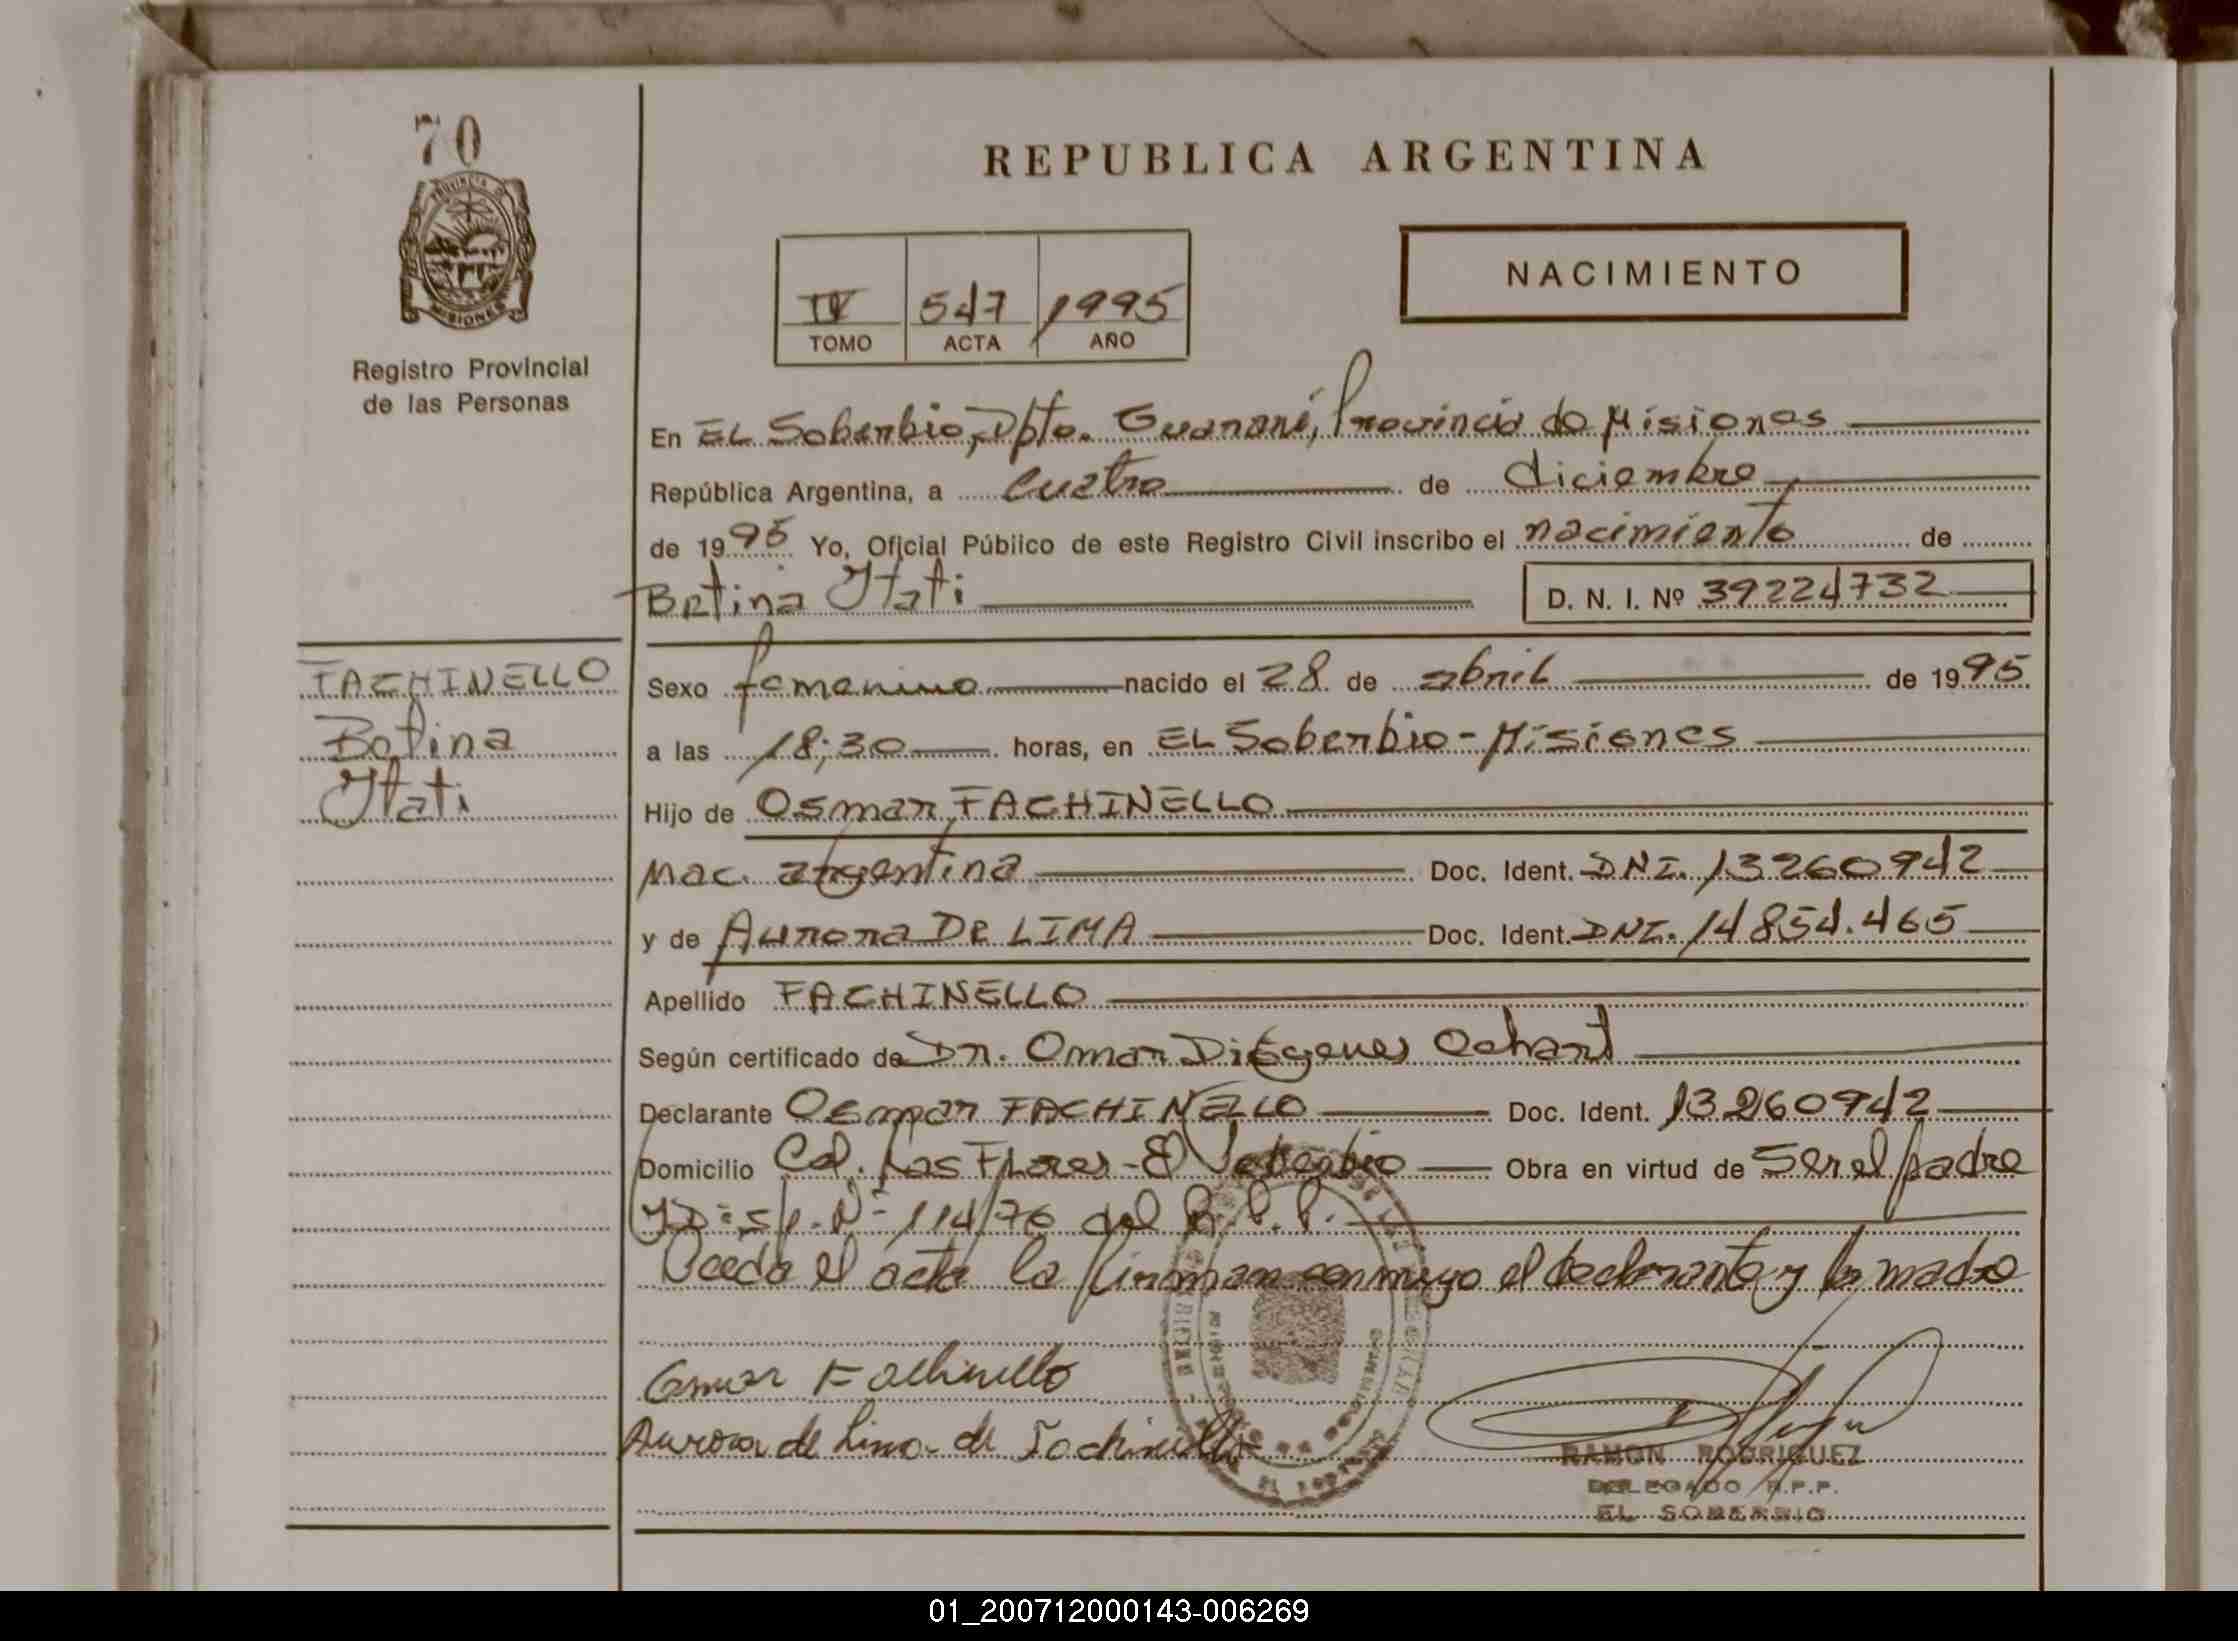 70
PROVINCIA DE
MISIONES
Registro Provincial
de las Personas
REPUBLICA ARGENTINA
IV 547 1995
TOMO ACTA AÑO
NACIMIENTO
En EL Soberbio, Dpto. Guaraní, Provincia de Misiones
República Argentina, a cuatro de diciembre
de 1995 Yo, Oficial Público de este Registro Civil inscribo el nacimiento de
Betina Itati D. N. I. Nº 39224732
FACHINELLO
Betina
Itati
Sexo femenino nacido el 28 de abril de 1995
a las 18;30 horas, en EL Soberbio - Misiones
Hijo de Osmar FACHINELLO
Nac. argentina Doc. Ident. DNI. 13260942
y de Aurora DE LIMA Doc. Ident. DNI. 14854.465
Apellido FACHINELLO
Según certificado de Dr. Omar Diógenes
Declarante Osmar FACHINELLO Doc. Ident. 13260942
Domicilio Col. Las Flores - El Soberbio Obra en virtud de Ser el padre
y Disp. Nº 114/76 del R.P.P.
el acta la firman conmigo el declarante y la madre
Osmar Fachinello
Aurora de Lima de Fachinello
RAMON RODRIGUEZ
DELEGADO R.P.P.
EL SOBERBIO
01_200712000143-006269